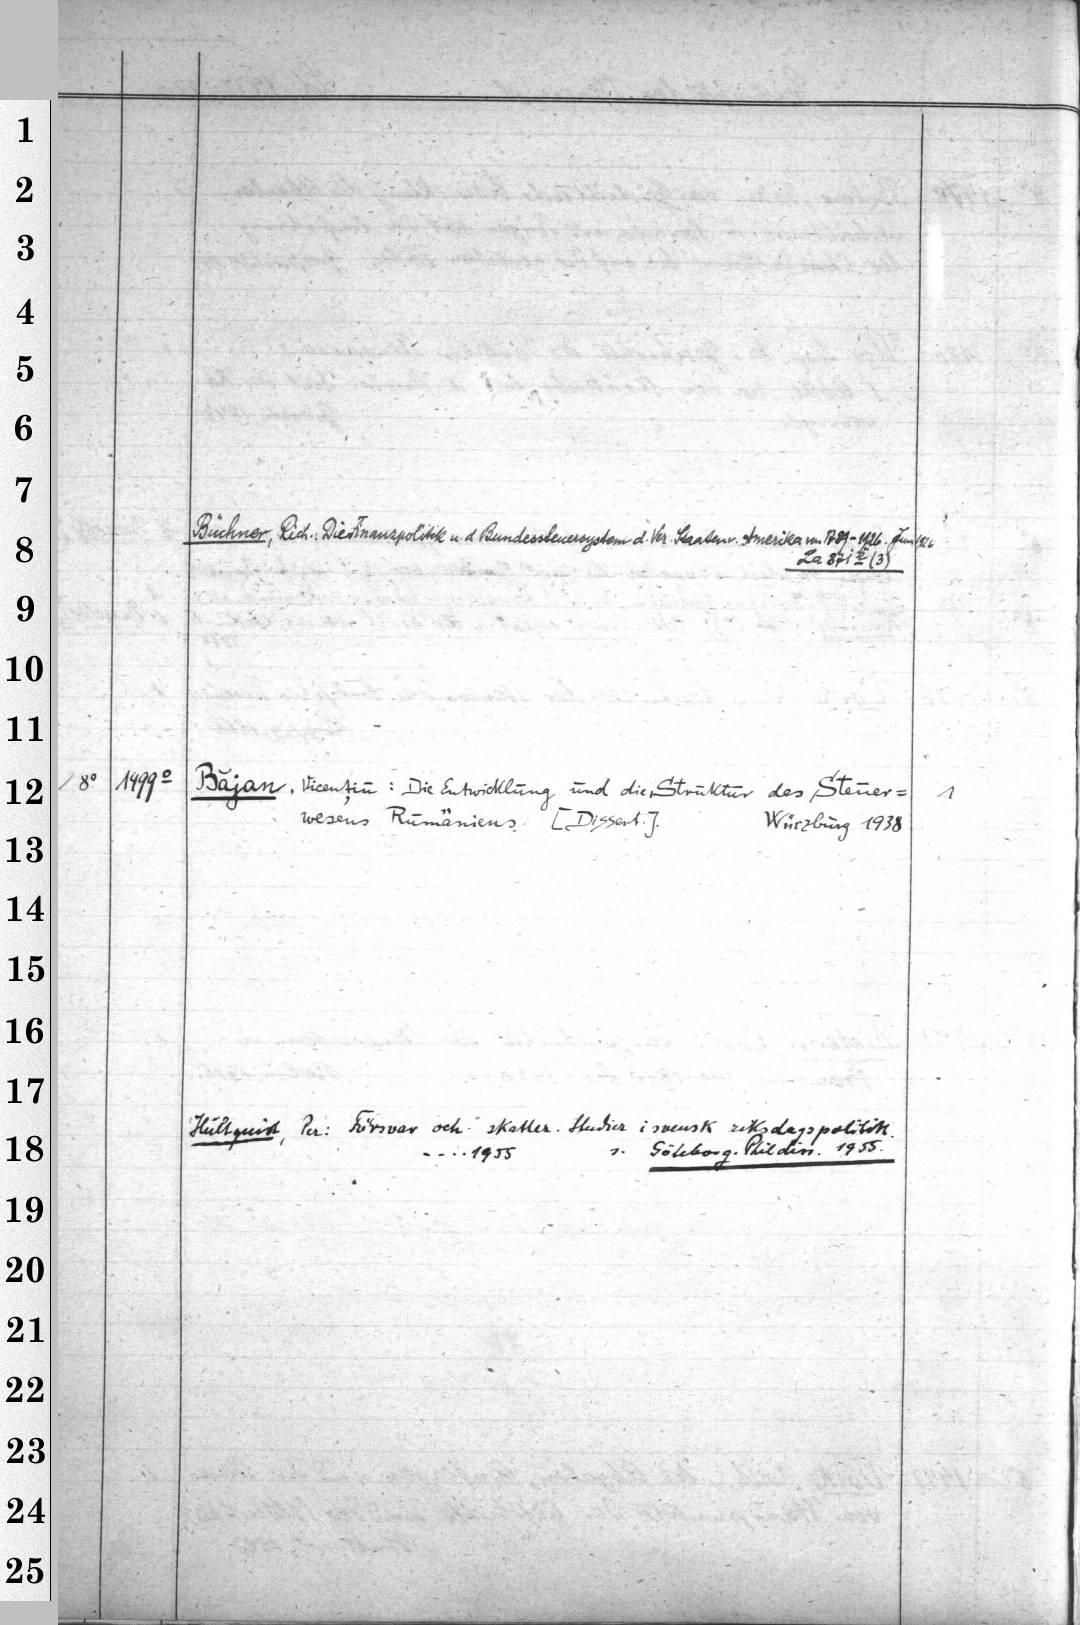 1
2
3
4
5
6
7
Büchner, Rich.: Die Finanzpolitik u. d. Bundessteuersystem d. Ver. Staaten v. Amerika von 1789-1926. Jena 1926
8
La 87i (3)
9
10
11
/ 8° 1499º Băjan, Vicenţiu : Die Entwicklung und die Struktur des Steuer= 1
12
wesens Rumäniens. [Dissert.]. Würzburg 1938
13
14
15
16
17
Hultquist, Per: Försvar och skatter. Studier i svensk riksdagspolitik.
18
....1955 s. Göteborg. Phil diss. 1955.
19
20
21
22
23
24
25